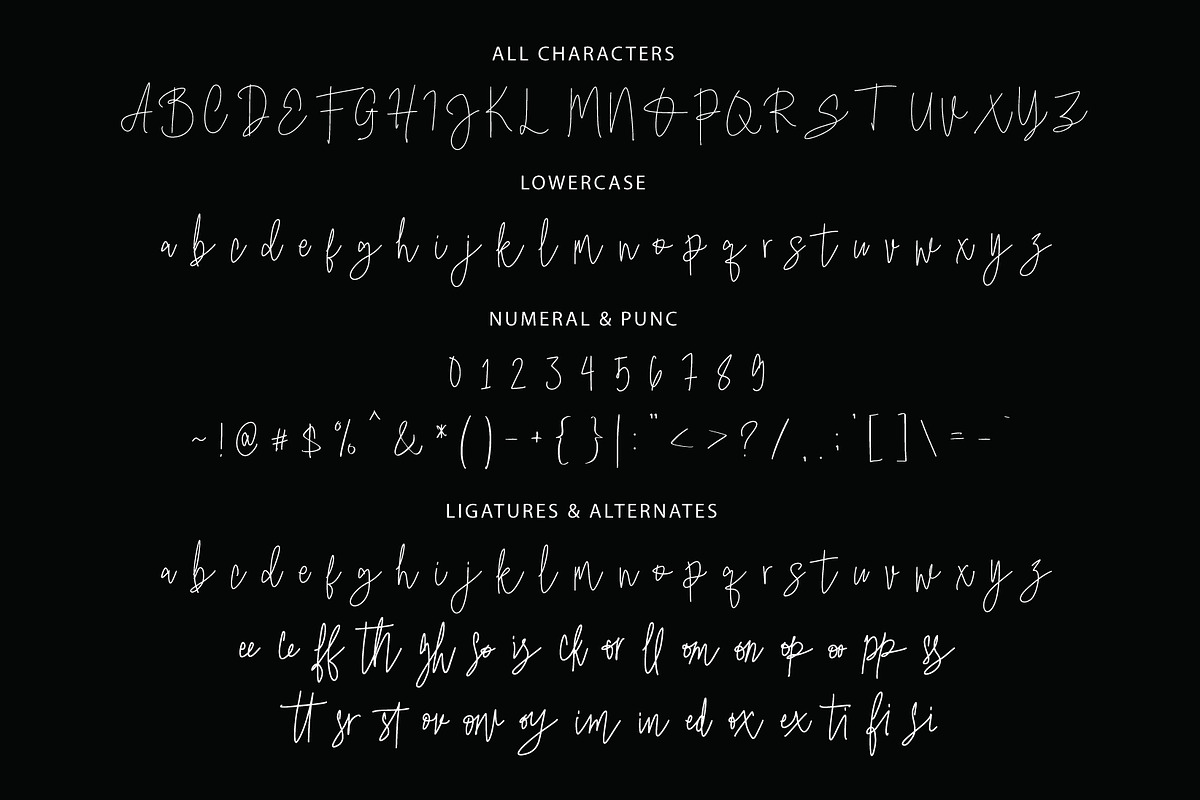 ALL CHARACTERS
A B C D E F G H I J K L M N O P Q R S T U V X Y Z
LOWERCASE
a b c d e f g h i j k l m n o p q r s t u v w x y z
NUMERAL & PUNC
0 1 2 3 4 5 6 7 8 9
~ ! @ # $ % ^ & * ( ) - + { } | : " < > ? / , . ; ' [ ] \ = - `
LIGATURES & ALTERNATES
a b c d e f g h i j k l m n o p q r s t u v w x y z
ee ce ff th gh so is ck or ll om on op oo pp ss
tt sr st ov ow oy im in ed ox ex ti fi si